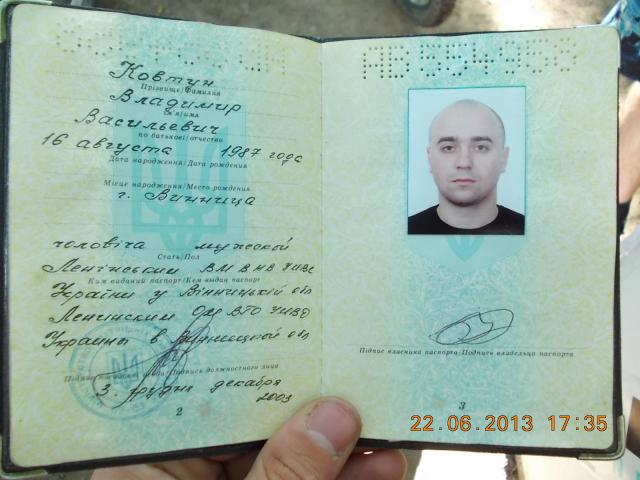 Ковтун
Прізвище/Фамилия
Владимир
Ім'я/имя
Васильевич
по батькові/отчество
16 августа 1987 года
Дата народження/Дата рождения
Місце народження/Место рождения
г. Винница
чоловіча мужской
Стать/Пол
Ленінським ВМ
Ким виданий паспорт/Кем выдан паспорт
України у Вінницькій обл
Ленинским ОМ ВГО УМВД
Украины в Винницкой обл
Підпис посадової особи/Подпись должностного лица
3 грудня декабря
2003
2
АВ 554458
Підпис власника паспорта/Подпись владельца паспорта
3
22.06.2013 17:35